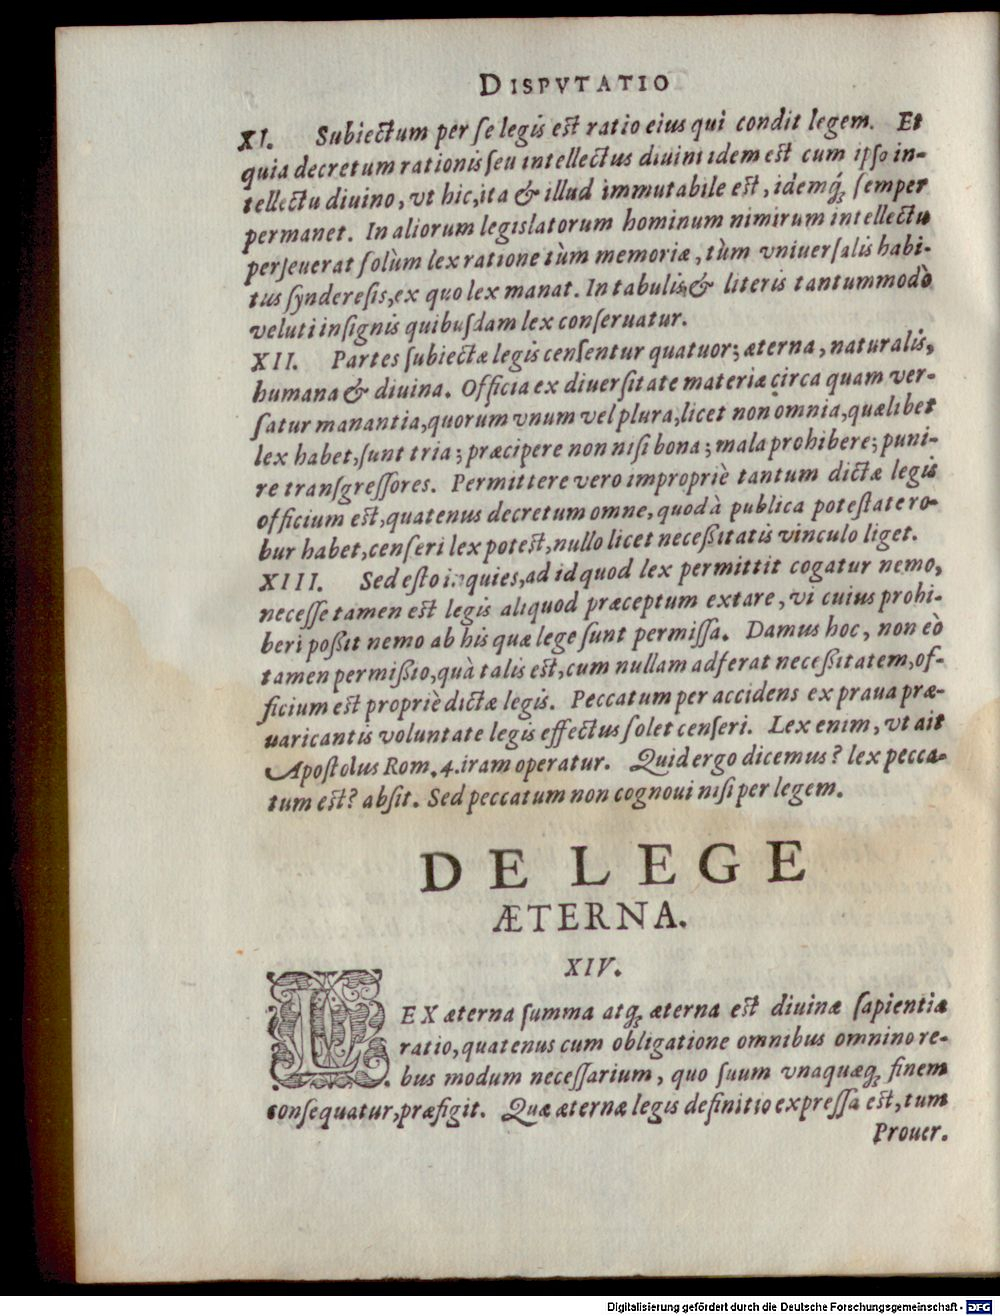 DISPVTATIO
XI. Subiectum per se legis est ratio eius qui condit legem. Et
quia decretum rationis seu intellectus diuini idem est cum ipso in-
tellectu diuino, vt hic, ita & illud immutabile est, idemq́; semper
permanet. In aliorum legislatorum hominum nimirum intellectu
perseuerat solùm lex ratione tùm memoriæ, tùm vniuersalis habi-
tus synderesis, ex quo lex manat. In tabulis & literis tantummodò
veluti in signis quibusdam lex conseruatur.
XII. Partes subiectæ legis censentur quatuor; æterna, naturalis,
humana & diuina. Officia ex diuersitate materiæ circa quam ver-
satur manantia, quorum vnum vel plura, licet non omnia, quælibet
lex habet, sunt tria; præcipere non nisi bona; mala prohibere; puni-
re transgressores. Permittere vero impropriè tantum dictæ legis
officium est, quatenus decretum omne, quod à publica potestate ro-
bur habet, censeri lex potest, nullo licet necessitatis vinculo liget.
XIII. Sed esto inquies, ad id quod lex permittit cogatur nemo,
necesse tamen est legis aliquod præceptum extare, vi cuius prohi-
beri possit nemo ab his quæ lege sunt permissa. Damus hoc, non eò
tamen permissio, quà talis est, cum nullam adferat necessitatem, of-
ficium est propriè dictæ legis. Peccatum per accidens ex praua præ-
uaricantis voluntate legis effectus solet censeri. Lex enim, vt ait
Apostolus Rom. 4. iram operatur. Quid ergo dicemus? lex pecca-
tum est? absit. Sed peccatum non cognoui nisi per legem.
DE LEGE
ÆTERNA.
XIV.
LEX æterna summa atq; æterna est diuinæ sapientiæ
ratio, quatenus cum obligatione omnibus omnino re-
bus modum necessarium, quo suum vnaquæq; finem
consequatur, præfigit. Quæ æternæ legis definitio expressa est, tum
Prouer.
Digitalisierung gefördert durch die Deutsche Forschungsgemeinschaft - DFG